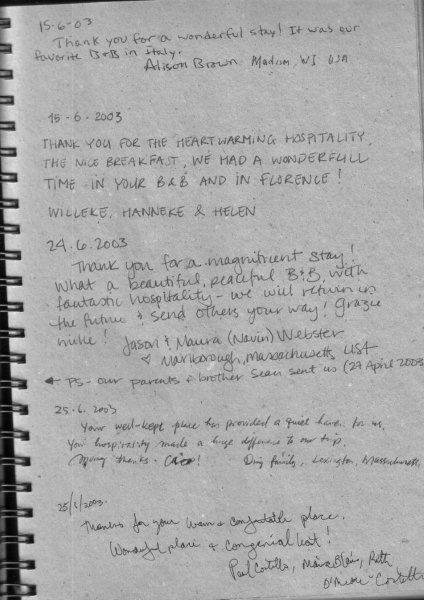 15-6-03
Thank you for a wonderful stay! It was our
favorite B+B in Italy.
Alison Brown Madison, WI USA
15-6-2003
THANK YOU FOR THE HEARTWARMING HOSPITALITY,
THE NICE BREAKFAST, WE HAD A WONDERFULL
TIME IN YOUR B&B AND IN FLORENCE!
WILLEKE, HANNEKE & HELEN
24.6.2003
Thank you for a magnificent stay!
What a beautiful, peaceful B&B with
fantastic hospitality - we will return in
the future & send others your way! Grazie
mille!
Jason & Maura (Navin) Webster
Marlborough, Massachusetts USA
← PS - our parents & brother Sean sent us (27 April 2003)
25.6.2003
Your well-kept place has provided a quiet haven for us.
Your hospitality made a huge difference to our trip.
Many thanks - Ciao! family, Lexington, Massachusetts
25/6/2003.
Thanks for your warm & comfortable place.
Wonderful place & congenial host!
Paul Costello, Maire Blair, Ruth
O'Meara-Costello